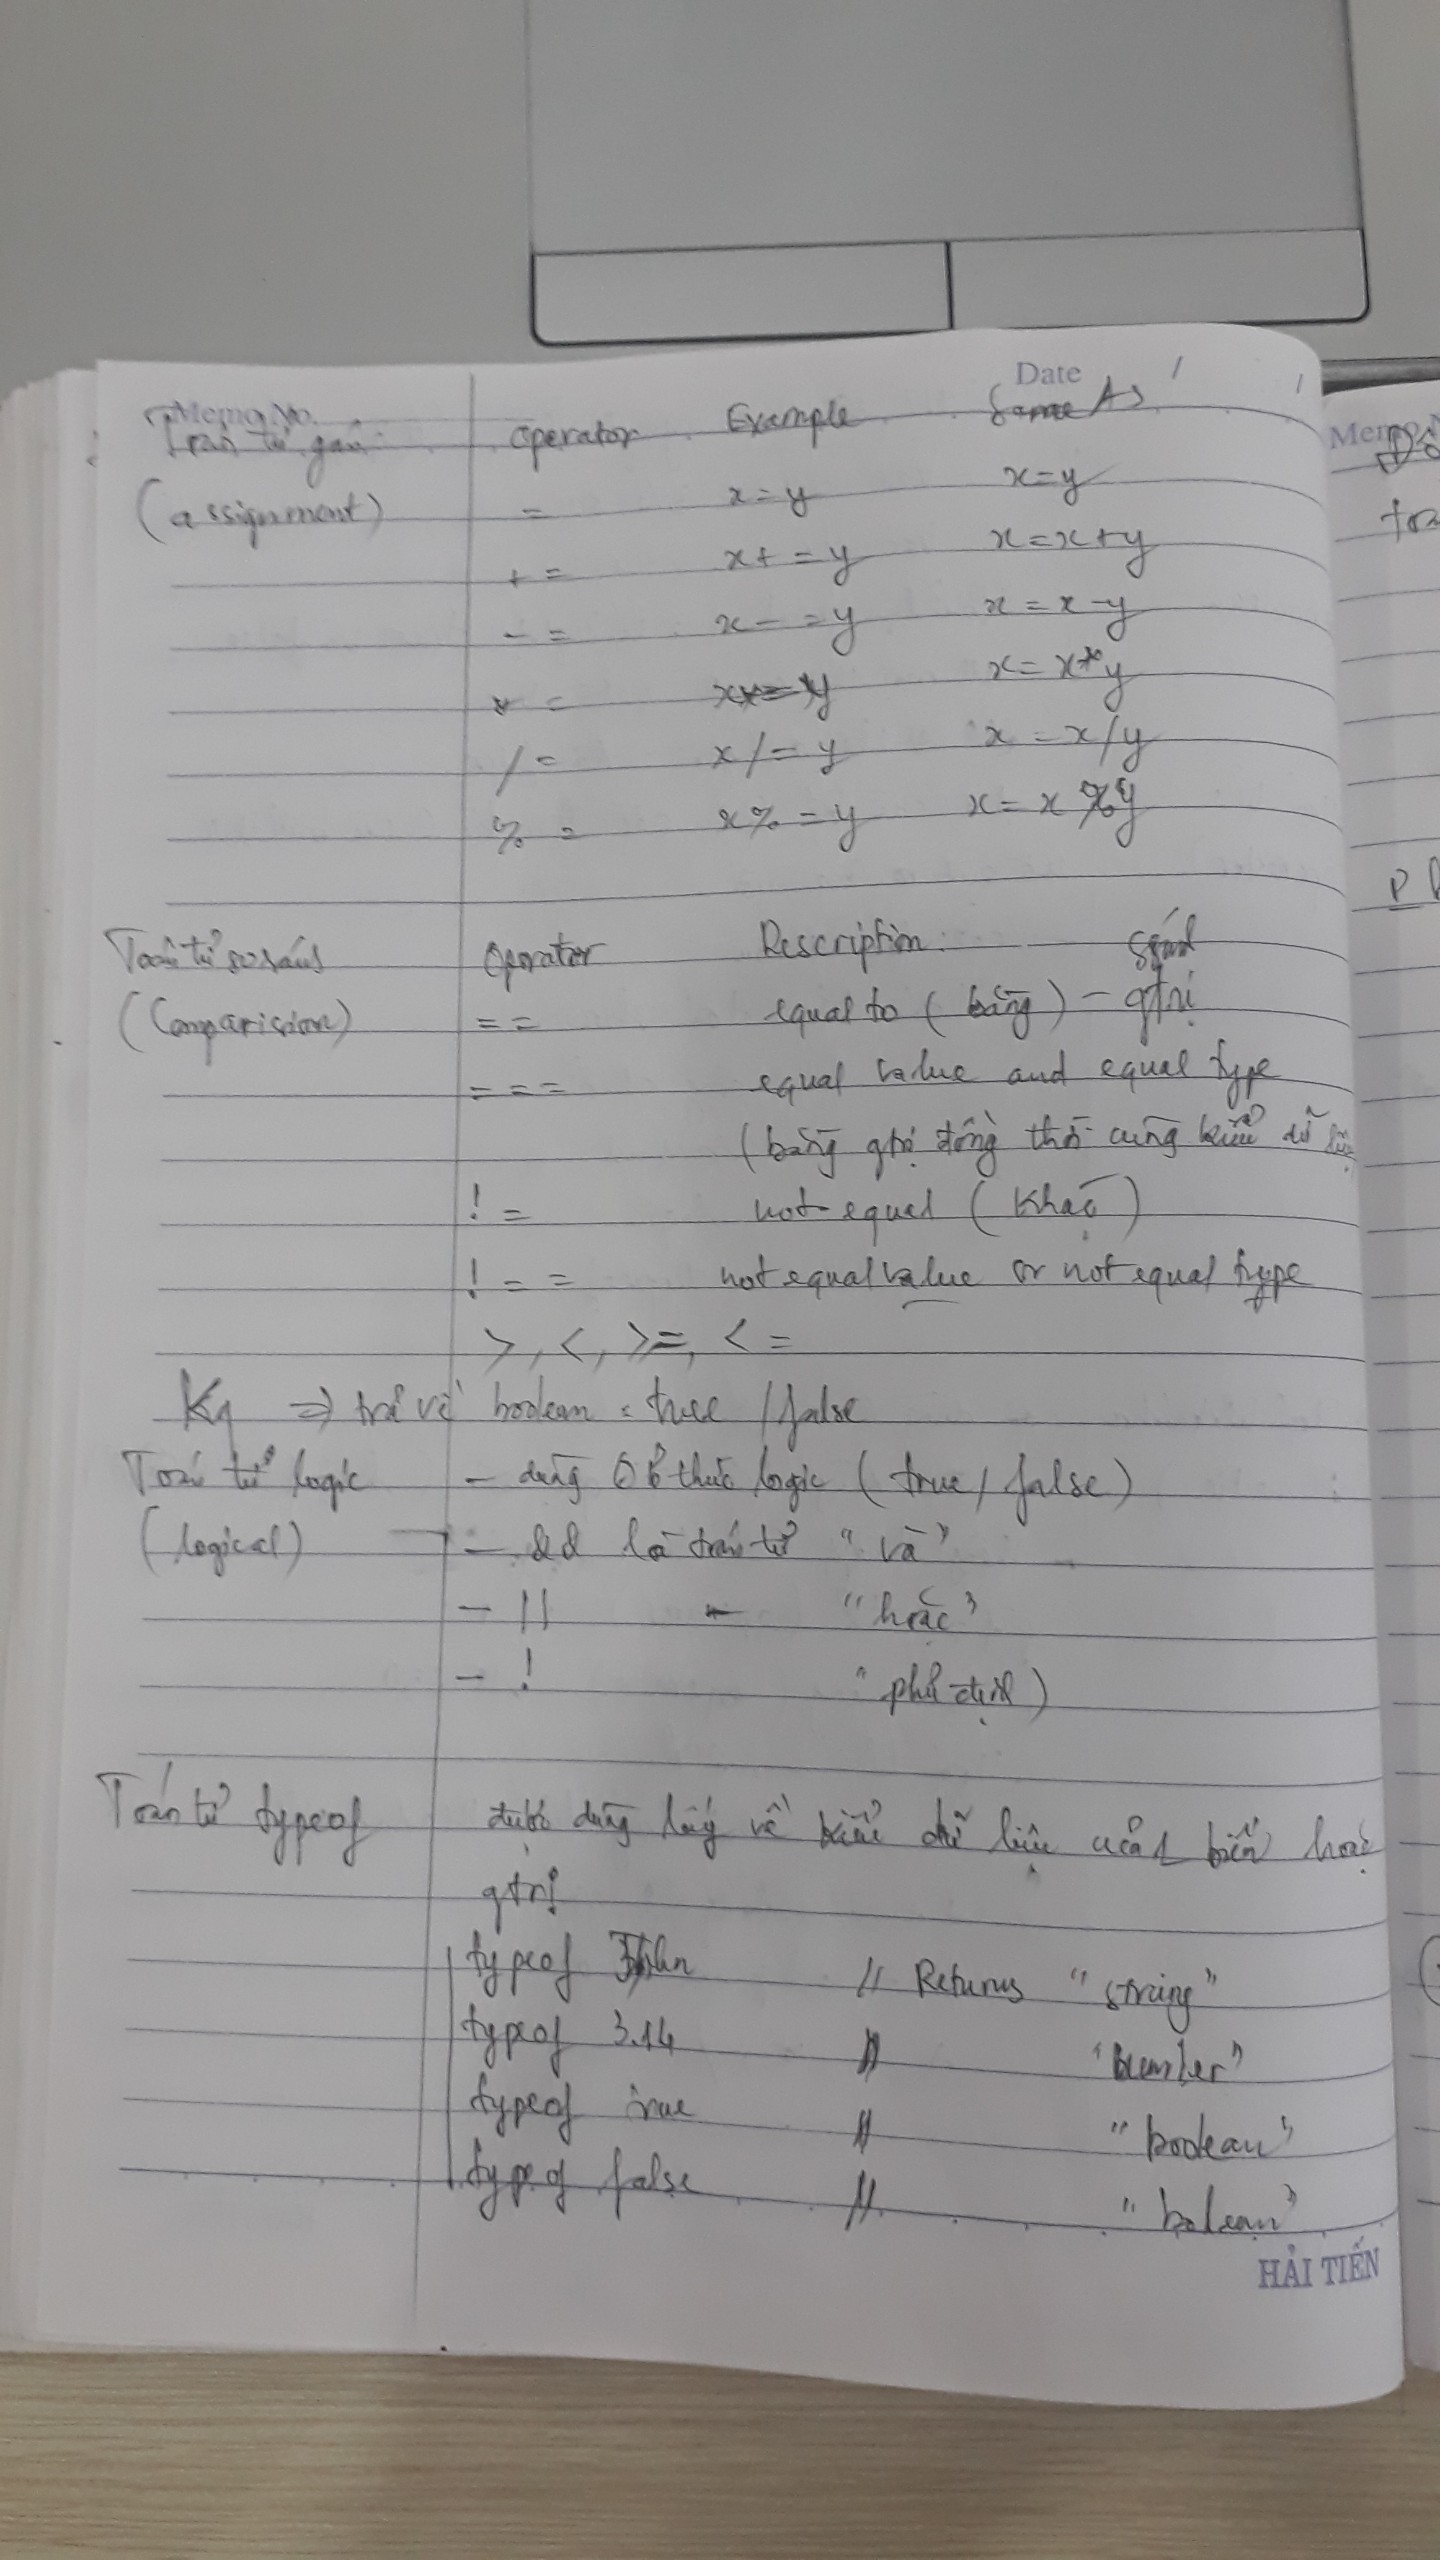 Memo No. Date / /
Toán tử gán operator Example Same As
(assignment) = x=y x=y
+= x+=y x=x+y
-= x-=y x=x-y
*= x*=y x=x*y
/= x/=y x=x/y
%= x%=y x=x%y
Toán tử so sánh operator Description: ssánh
(Comparision) == equal to (bằng) - gtrị
=== equal value and equal type
(bằng gtrị đồng thời cùng kiểu dữ liệu
!= not equal (khác)
!== not equal value or not equal type
>, <, >=, <=
Kq => trả về boolean = true /false
Toán tử logic - dùng ở thức logic (true/false)
(logical) - && là toán tử "và"
- || - "hoặc"
- ! "phủ định)
Toán tử typeof được dùng lấy về kiểu dữ liệu của 1 biến hoặc
gtrị
typeof John // Returns "string"
typeof 3.14 // "number"
typeof true // "boolean"
typeof false // "bolean"
HẢI TIẾN
Memo N